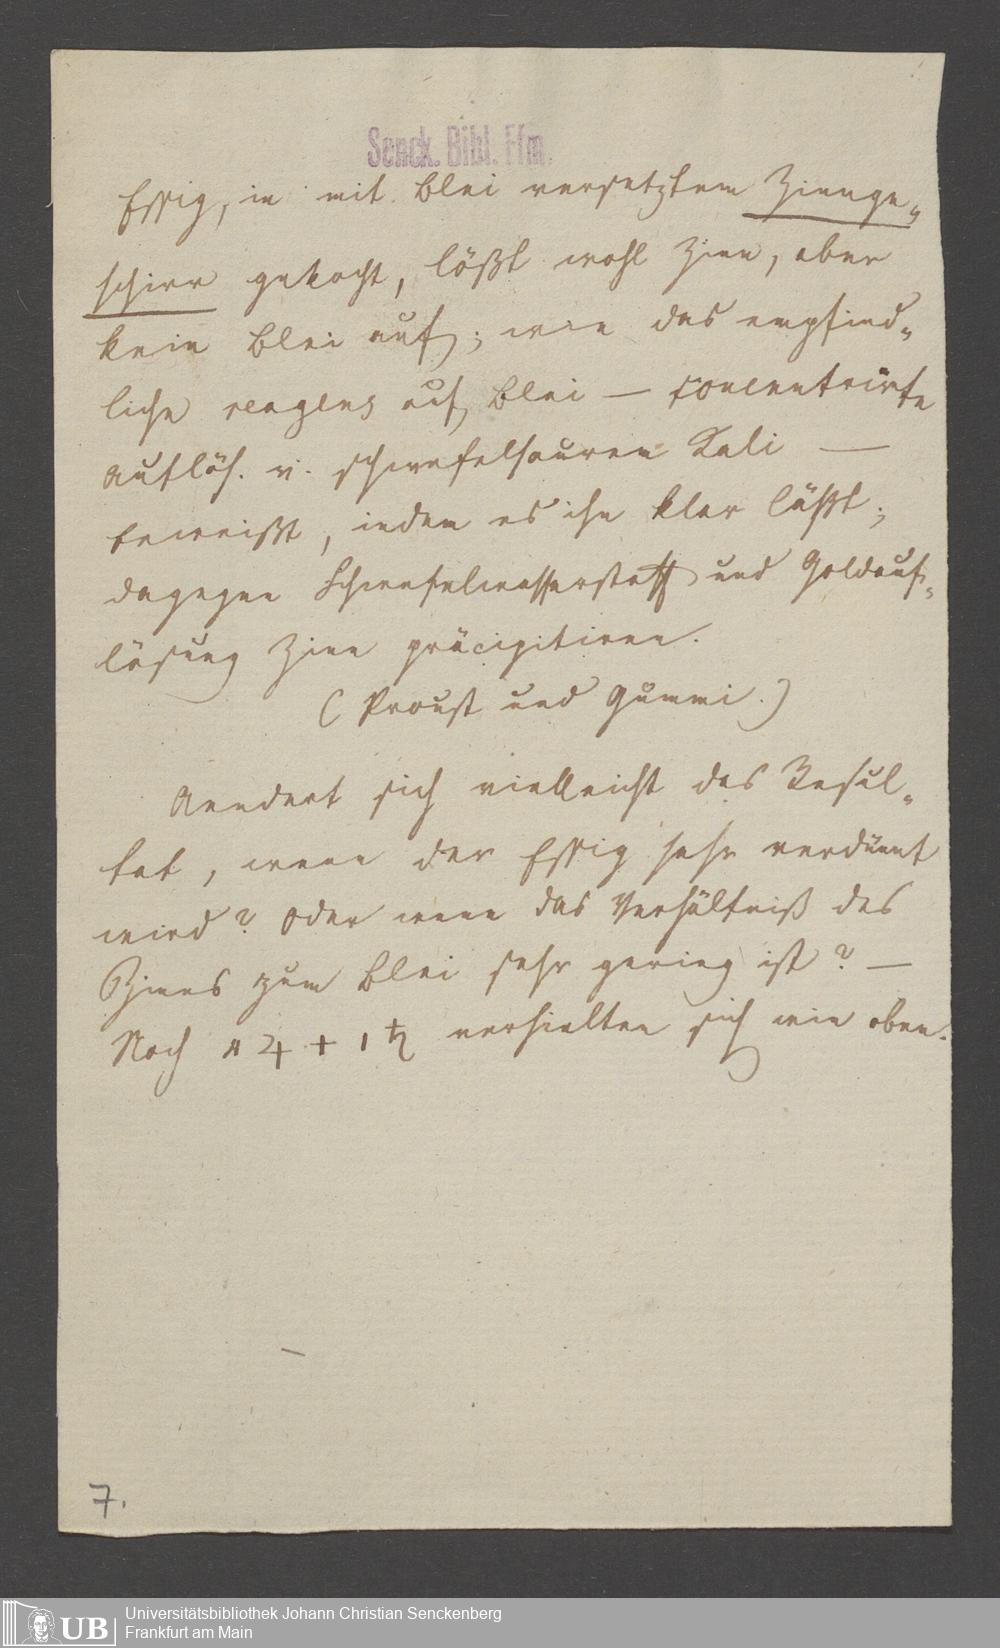 Senck. Bibl. Ffm.
Essig, in mit Blei versetztem Zinnge„
schirr gekocht, lößt wohl Zinn, aber
kein Blei auf; wie das empfind„
liche reagens auf Blei — concentrirte
Auflös. v. schwefelsauren Kali —
beweißt, indem es ihn klar läßt;
dagegen Schwefelwasserstoff und Goldauf„
lösung Zinn präcipitiren.
(Proust und Gummi.)
Aendert sich vielleicht das Resul„
tat, wenn der Essig sehr verdünnt
wird? Oder wenn das Verhältniß des
Zinns zum Blei sehr gering ist? —
Noch ♃ + 1 ♄ verhielten sich wie oben.
7.
UB
Universitätsbibliothek Johann Christian Senckenberg
Frankfurt am Main